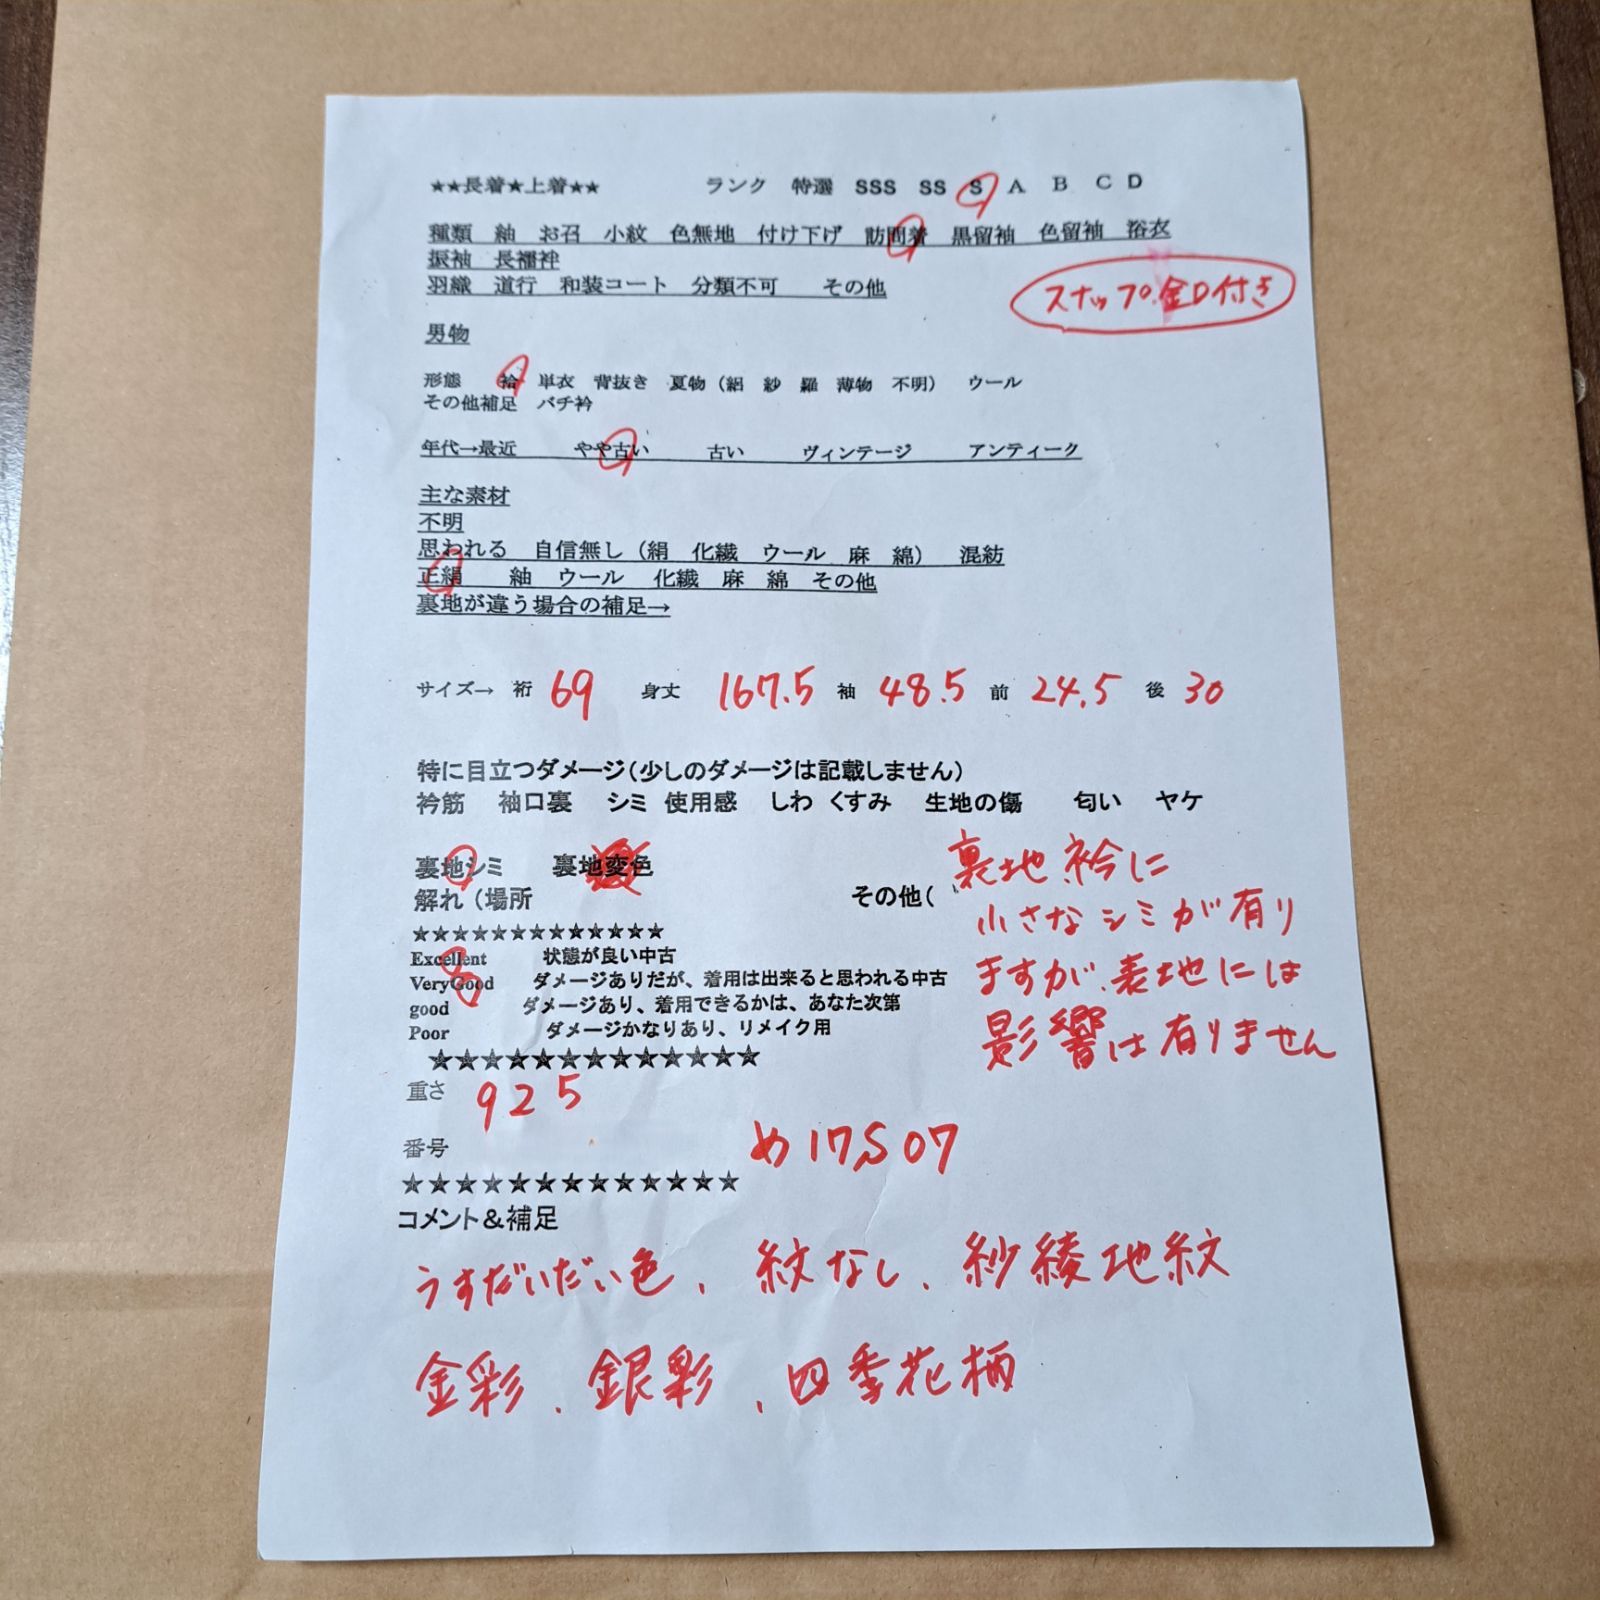 ★★長着★上着★★ ランク 特選 SSS SS S A B C D
種類 紬 お召 小紋 色無地 付け下げ 訪問着 黒留袖 色留袖 浴衣
振袖 長襦袢
羽織 道行 和装コート 分類不可 その他
スナップ金口付き
男物
形態 袷 単衣 背抜き 夏物（絽 紗 羅 薄物 不明） ウール
その他補足 バチ衿
年代→最近 やや古い 古い ヴィンテージ アンティーク
主な素材
不明
思われる 自信無し（絹 化繊 ウール 麻 綿） 混紡
正絹 紬 ウール 化繊 麻 綿 その他
裏地が違う場合の補足→
サイズ→ 裄 69 身丈 167.5 袖 48.5 前 24.5 後 30
特に目立つダメージ（少しのダメージは記載しません）
衿筋 袖口裏 シミ 使用感 しわ くすみ 生地の傷 匂い ヤケ
裏地シミ 裏地変色
解れ（場所 その他（
裏地衿に
小さなシミが有り
ますが、表地には
影響は有りません
★★★★★★★★★★★★★
Excellent 状態が良い中古
VeryGood ダメージありだが、着用は出来ると思われる中古
good ダメージあり、着用できるかは、あなた次第
Poor ダメージかなりあり、リメイク用
★★★★★★★★★★★★★
重さ 925
番号 め17S07
★★★★★★★★★★★★★
コメント＆補足
うすだいだい色、紋なし、紗綾地紋
金彩、銀彩、四季花柄